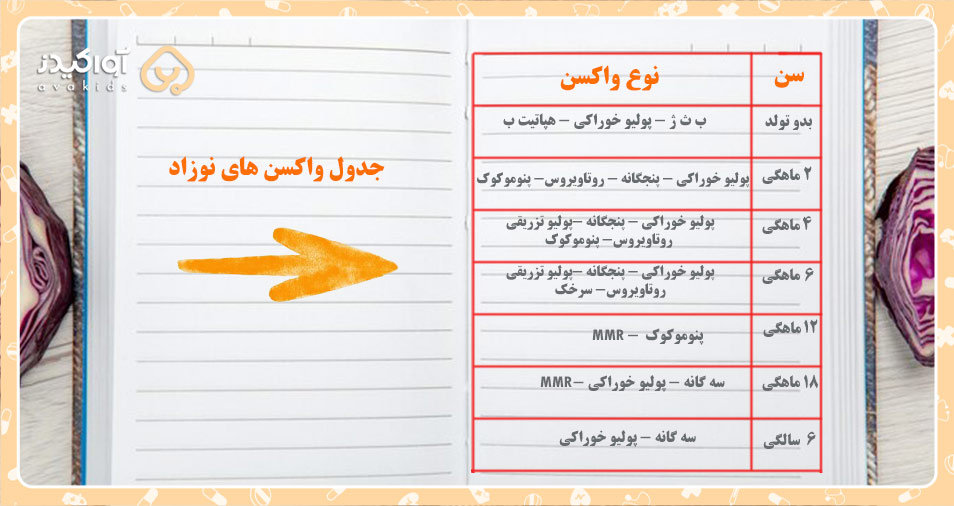 آواکیدز
avakids
جدول واکسن های نوزاد
سن نوع واکسن
بدو تولد ب ث ژ – پولیو خوراکی – هپاتیت ب
۲ ماهگی پولیو خوراکی – پنجگانه – روتاویروس– پنوموکوک
۴ ماهگی پولیو خوراکی – پنجگانه –پولیو تزریقی
روتاویروس– پنوموکوک
۶ ماهگی پولیو خوراکی – پنجگانه –پولیو تزریقی
روتاویروس– سرخک
۱۲ ماهگی پنوموکوک – MMR
۱۸ ماهگی سه گانه – پولیو خوراکی –MMR
۶ سالگی سه گانه – پولیو خوراکی